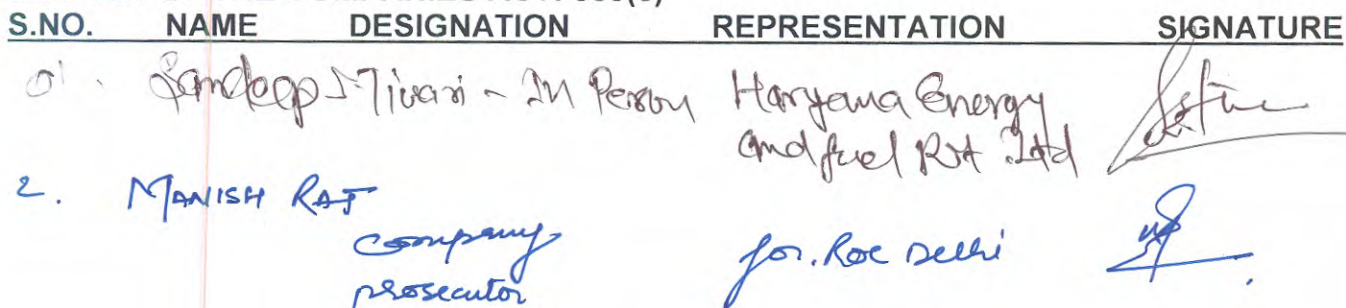 S.NO. NAME DESIGNATION REPRESENTATION SIGNATURE
01. Sandeep Tiwari - In Person Haryana Energy
and fuel Pvt. Ltd
2. MANISH RAJ
Company for. ROC Delhi
prosecutor